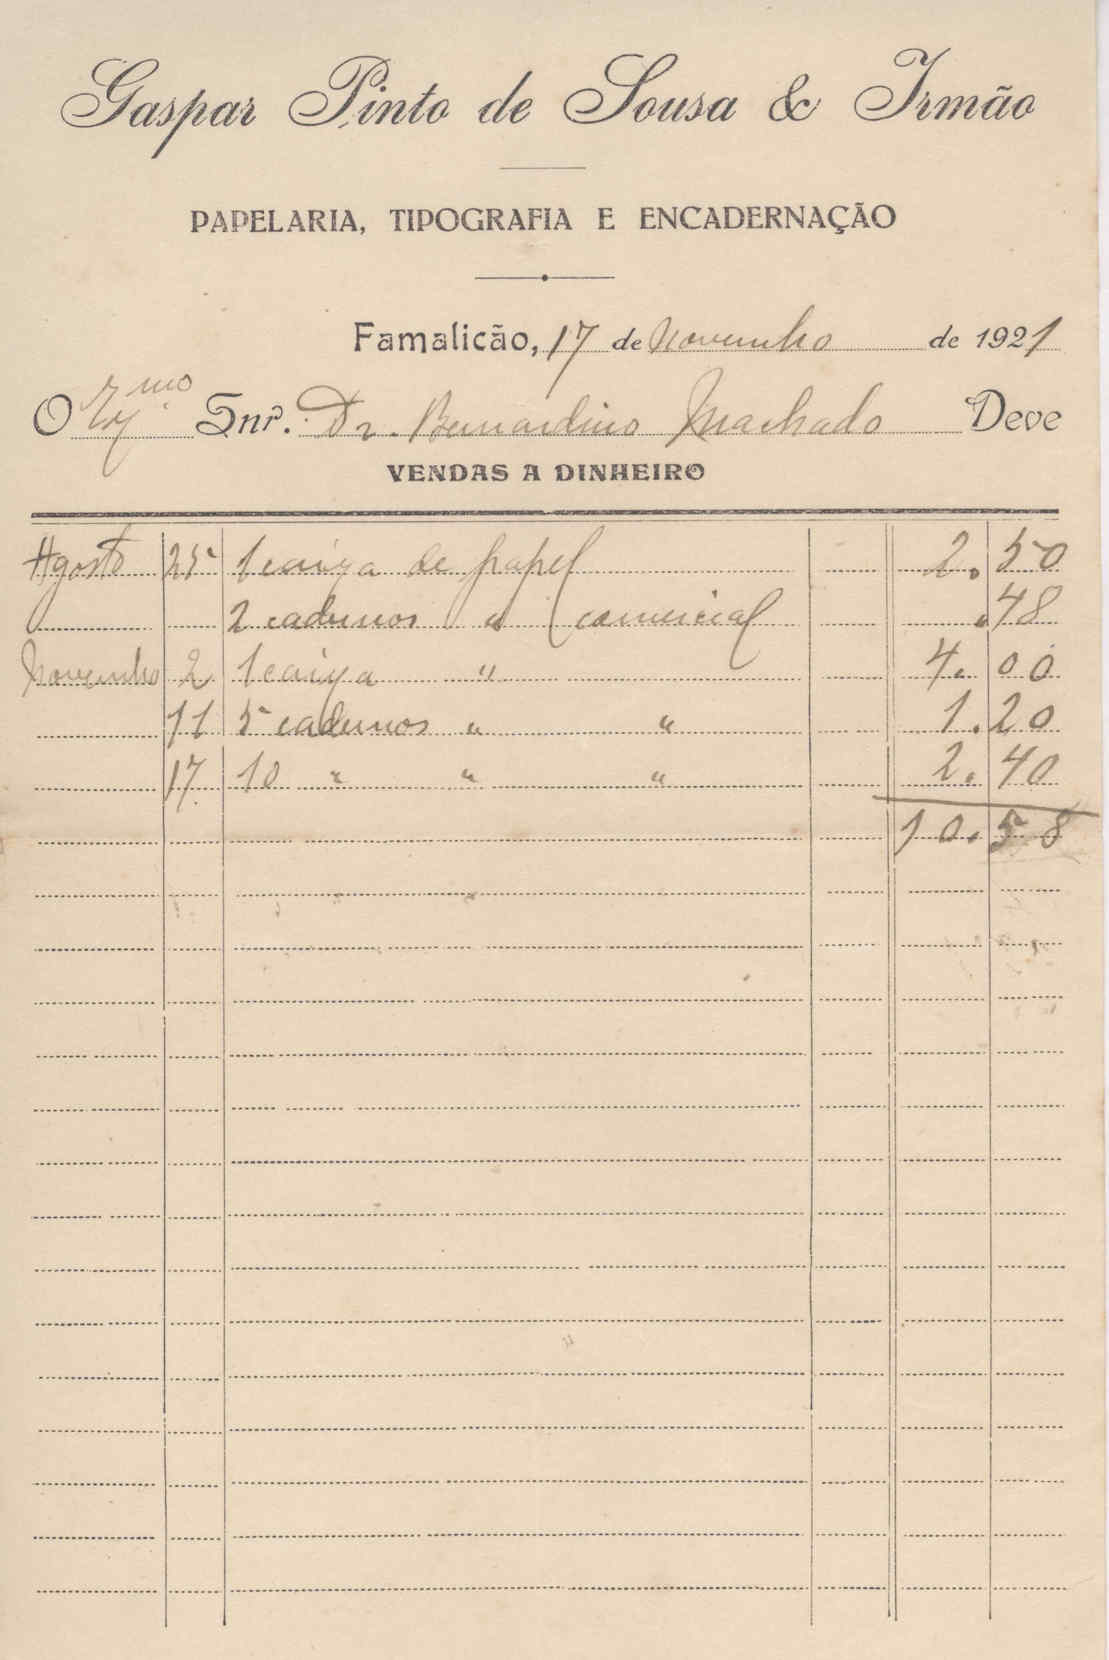 Gaspar Pinto de Sousa & Irmão
PAPELARIA, TIPOGRAFIA E ENCADERNAÇÃO
Famalicão, 17 de Novembro de 1921
O Exmo Snr. Dr. Bernardino Machado Deve
VENDAS A DINHEIRO
Agosto 25 1 caixa de papel 2. 50
2 cadernos " comercial " 48
Novembro 2 1 caixa " 4. 00
11 5 cadernos " " 1. 20
17 10 " " " 2. 40
10. 58